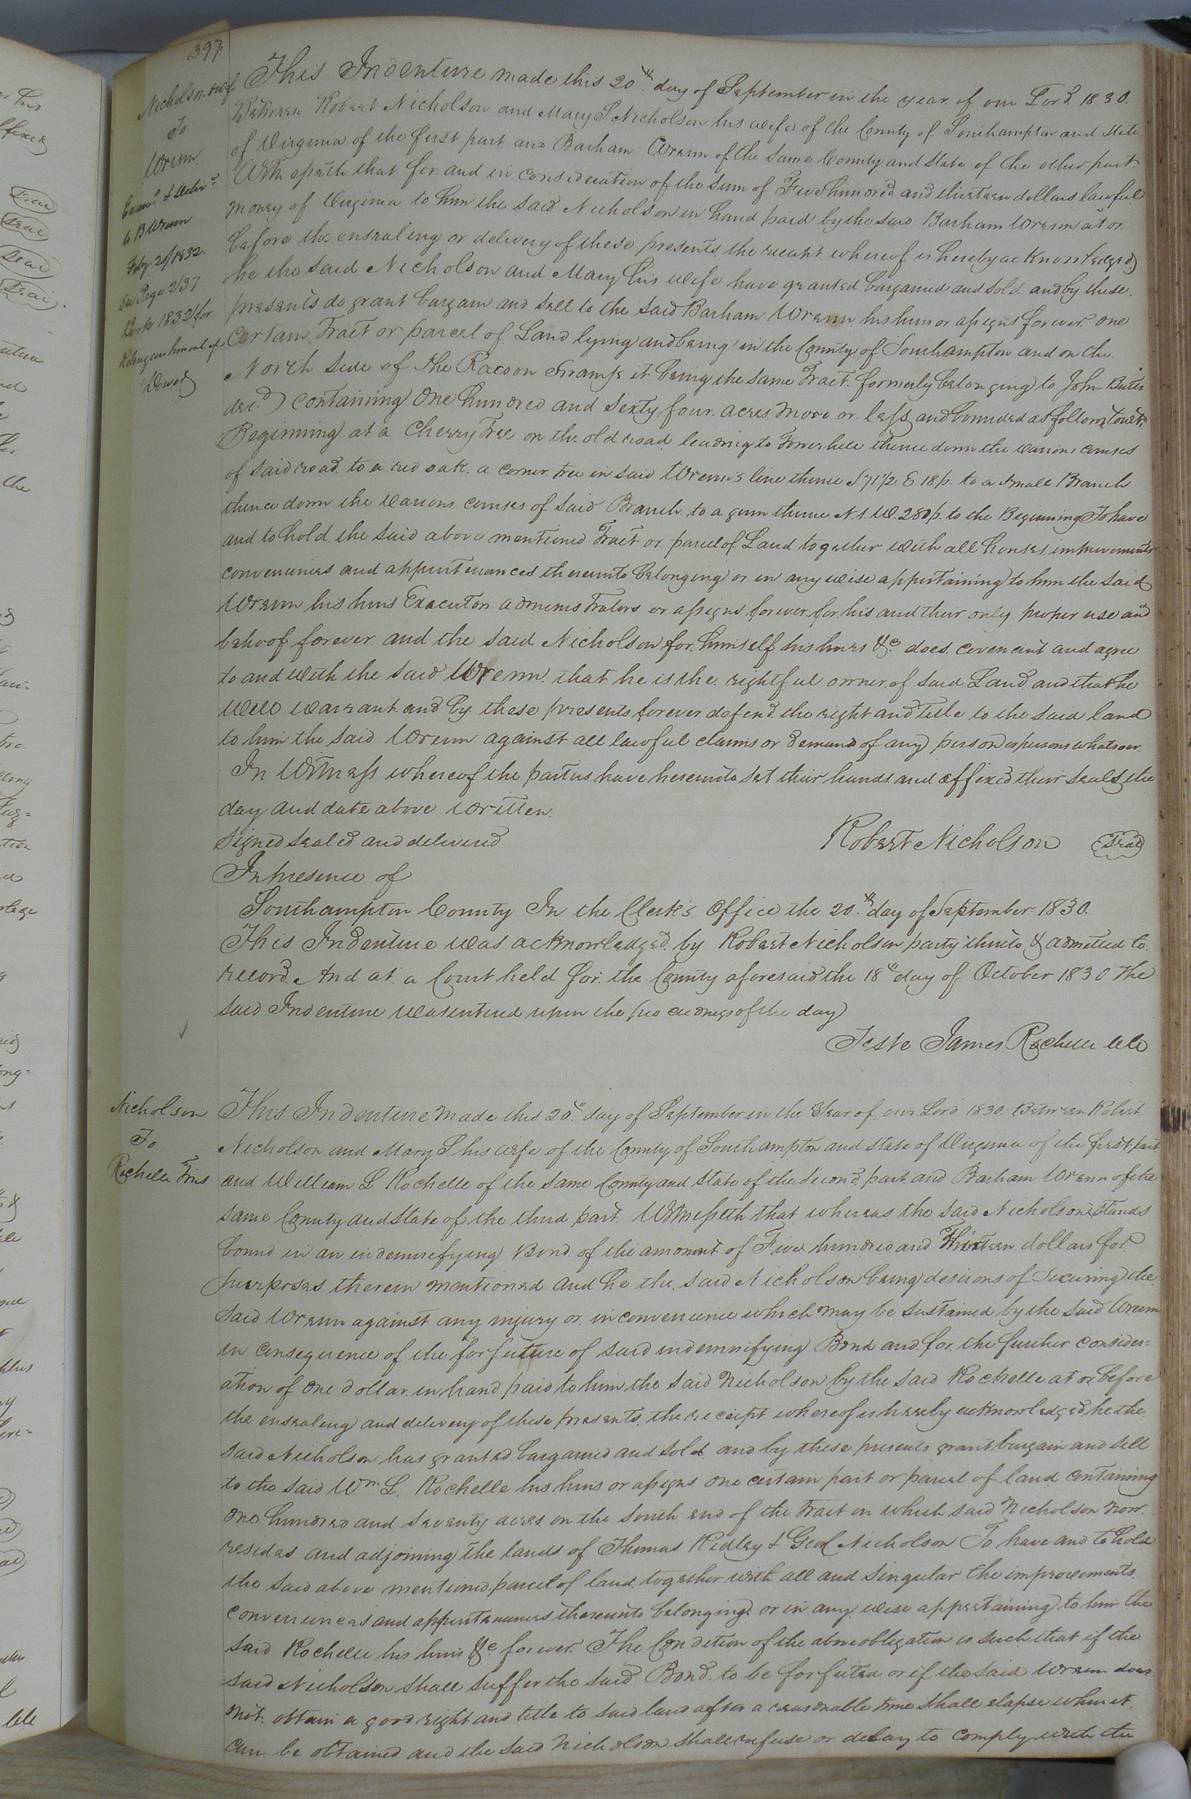 397
Nicholson &wife
To
Wrenn
Exam.d & Deliv.d
to B Wrenn
Feby 20/1832.
See Page 237
Book 1832 for
Relinquishment of
Dower
This Indenture made this 20th day of September in the year of our Lord 1830.
Between Robert Nicholson and Mary S Nicholson his wife of the County of Southampton and state
of Virginia of the first part and Barham Wrenn of the Same County and State of the other part
Witnesseth that for and in consideration of the Sum of Five hundred and thirteen dollars lawful
money of Virginia to him the said Nicholson in hand paid by the said Barham Wrenn at or
before the ensealing or delivery of these presents, the receipt whereof is hereby acknowledged
he the said Nicholson and Mary his wife have granted bargained and sold and by these
presents do grant bargain and sell to the said Barham Wrenn his heirs or assigns forever one
Certain Tract or parcel of Land lying and being in the County of Southampton and on the
North Side of the Racoon Swamp it being the same Tract formerly belonging to John
dec.d containing One hundred and Sixty four acres more or less and bounded as follows, towit;
Beginning at a Cherry Tree on the old road leading to thence down the various courses
of said road to a red oak, a corner tree in said Wrenn's line thence S 71½ E 18 p. to a small Branch
thence down the various courses of said Branch to a gum thence N. 1. W. 280 p. to the Beginning To have
and to hold the said above mentioned Tract or parcel of Land together with all houses improvements
conveniences and appurtenances thereunto belonging or in any wise appertaining to him the said
Wrenn his heirs Executors administrators or assigns forever for his and their only proper use and
behoof forever. and the said Nicholson for himself his heirs &c does covenant and agree
to and with the said Wrenn, that he is the rightful owner of said Land and that he
will warrant and by these presents forever defend the right and title to the said land
to him the said Wrenn against all lawful claims or demand of any person or persons whatsoever
In Witness whereof the parties have hereunto set their hands and affixed their seals the
day and date above written.
Signed sealed and delivered
Robert Nicholson Seal
In presence of
Southampton County In the Clerk's Office the 20th day of September 1830.
This Indenture was acknowledged by Robert Nicholson party thereto & admitted to
record. And at a Court held for the County aforesaid the 18th day of October 1830 The
said Indenture was entered upon the proceedings of the day
Teste James Rochelle
Nicholson
To
Rochelle Trus
This Indenture made this 20th day of September in the Year of our Lord 1830. Between Robert
Nicholson and Mary S his wife of the County of Southampton and state of Virginia of the first part
and William L Rochelle of the same County and State of the second part and Barham Wrenn of the
same County and State of the third part. Witnesseth that whereas the said Nicholson Stands
bound in an indemnifying Bond of the amount of Five hundred and Thirteen dollars for
purposes therein mentioned and he the said Nicholson being desirous of Securing the
said Wrenn against any injury or inconvenience which may be sustained by the said Wrenn
in consequence of the forfeiture of said indemnifying Bond and for the further consider=
ation of one dollar in hand paid to him the said Nicholson by the said Rochelle at or before
the ensealing and delivery of these presents, the receipt whereof is hereby acknowledged, he the
said Nicholson has granted bargained and sold and by these presents grant bargain and sell
to the said Wm L. Rochelle his heirs or assigns one certain part or parcel of land containing
one hundred and Seventy acres on the South end of the tract on which said Nicholson now
resides and adjoining the lands of Thomas Ridley & Geo Nicholson To have and to hold
the said above mentioned parcel of land, together with all and singular the improvements,
conveniences and appurtenances thereunto belonging or in any wise appertaining to him the
said Rochelle his heirs &c forever. The Condition of the above obligation is such, that if the
said Nicholson shall suffer the said Bond to be forfeited or if the said Wrenn does
not obtain a good right and title to said land after a reasonable time shall elapse when it
can be obtained and the said Nicholson shall refuse or delay to comply with the